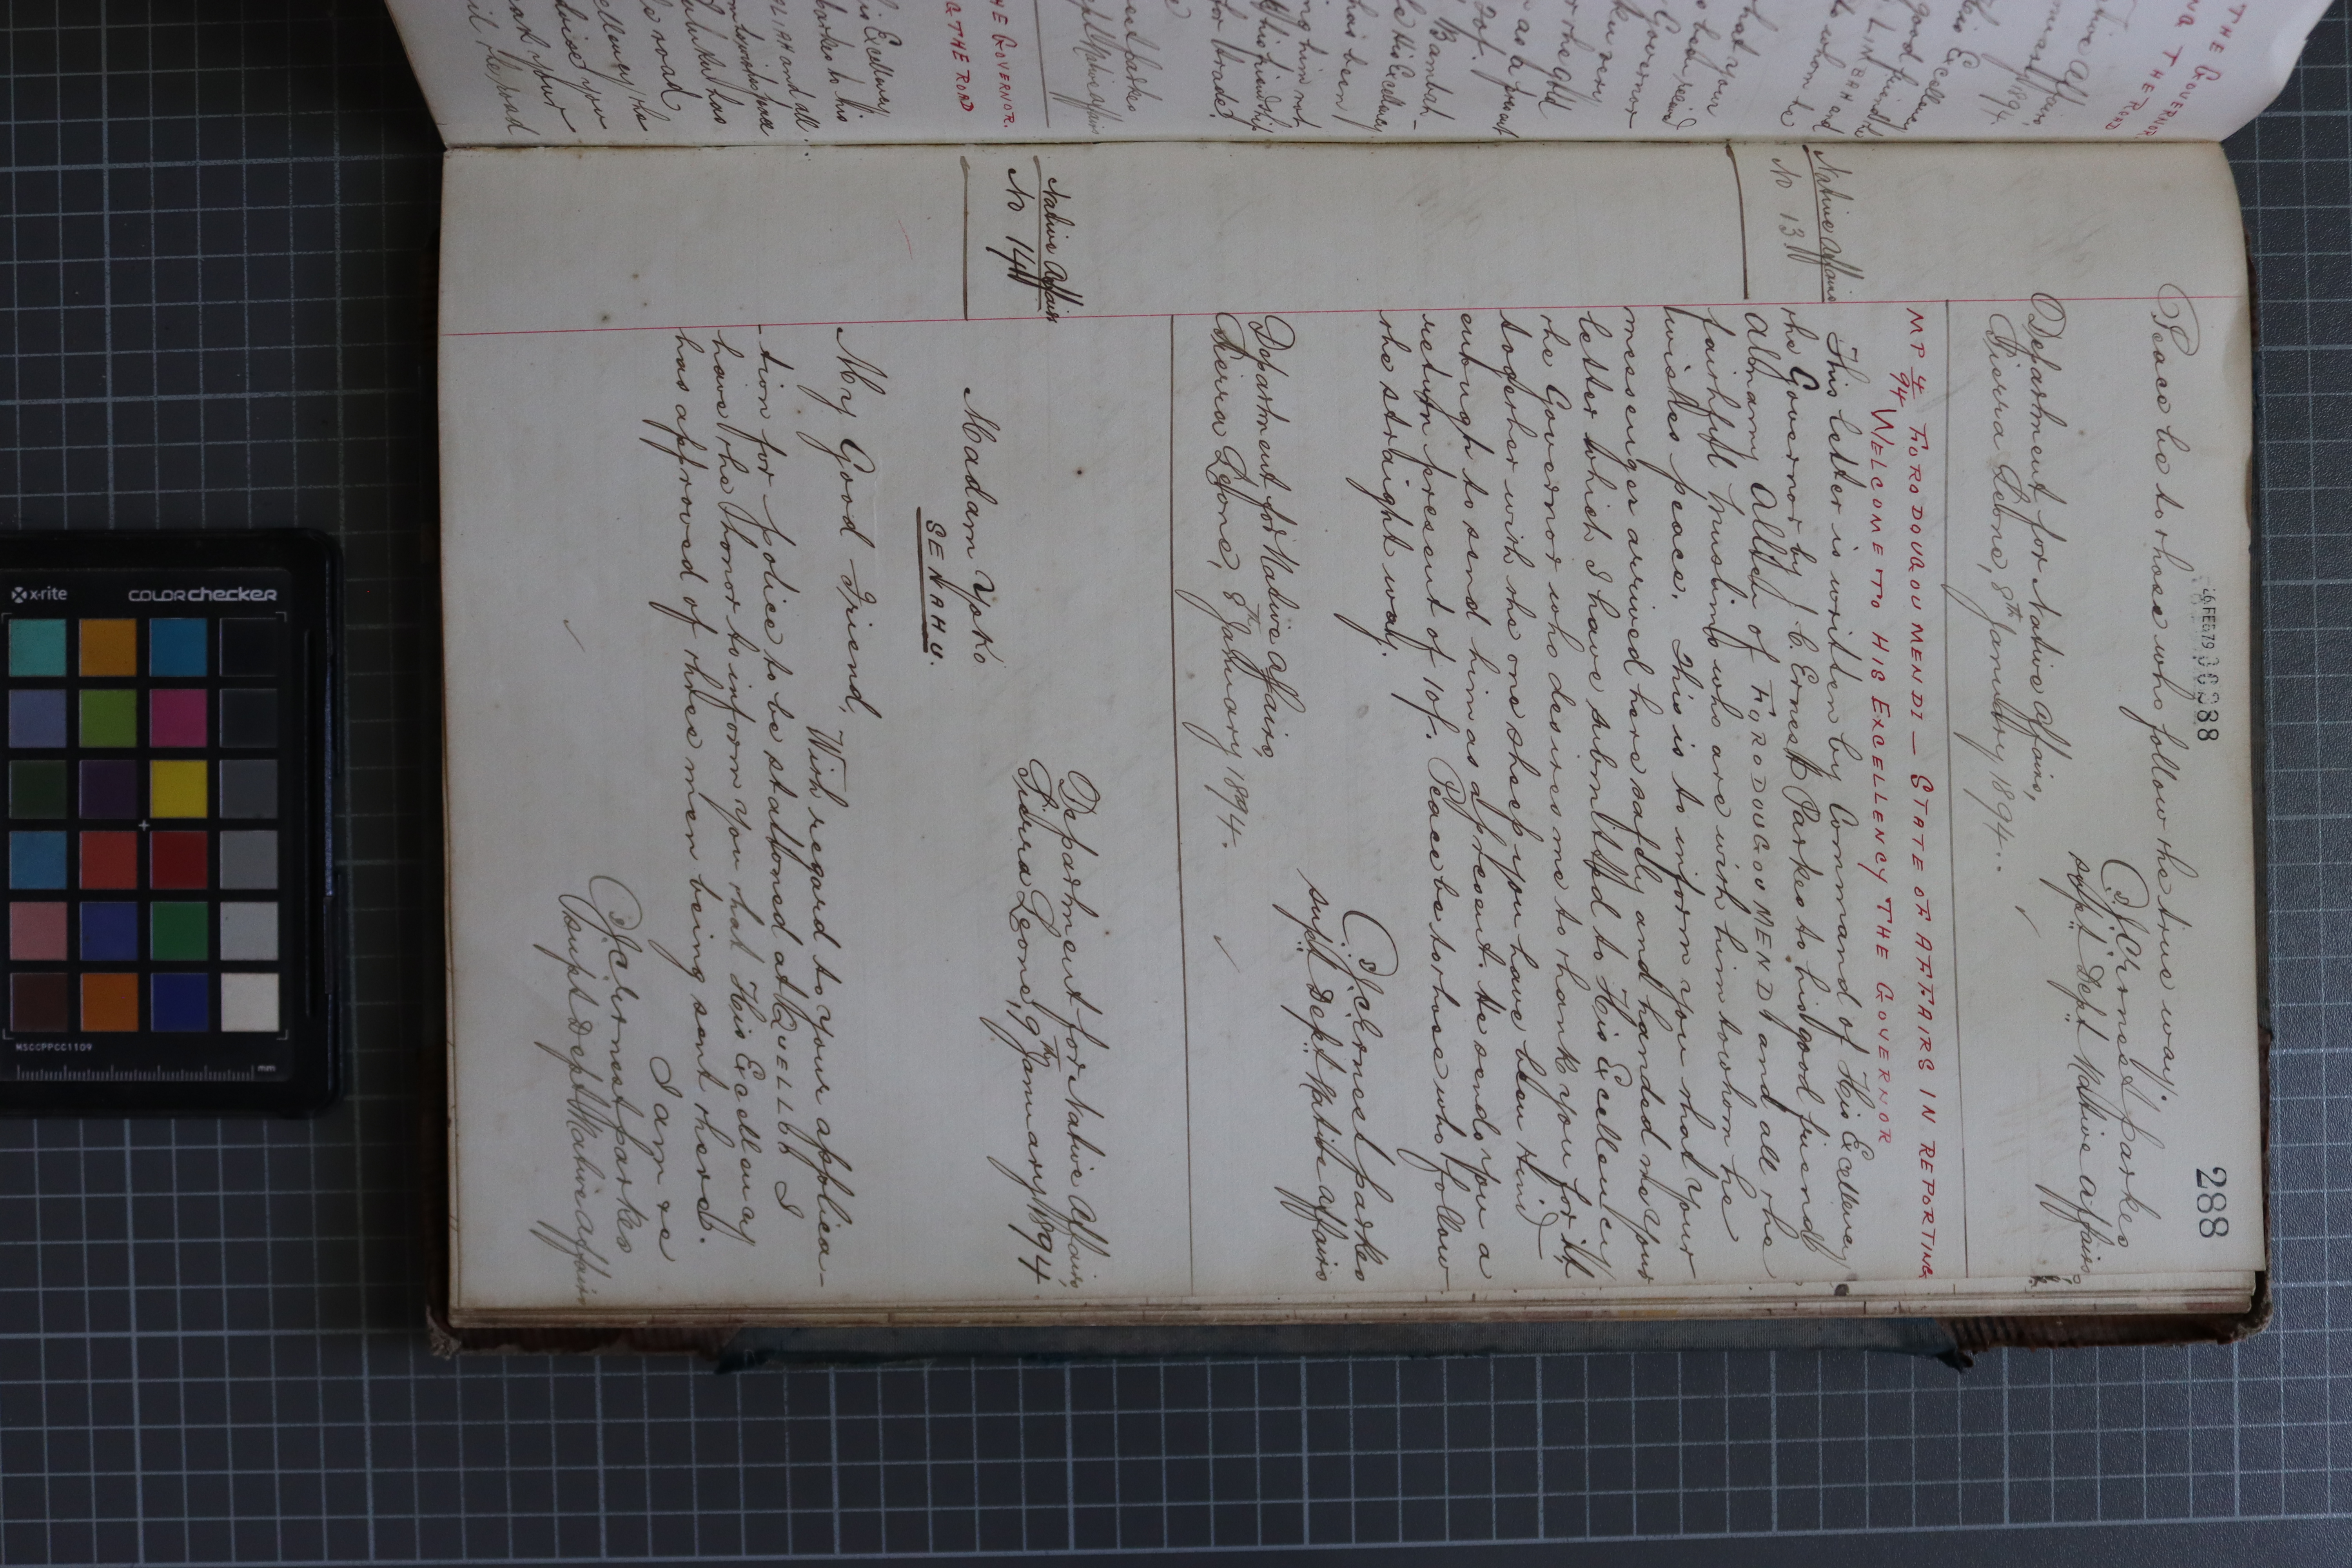 288
26 FEB 79 00088
Peace be to those who follow the true way.
(Sd) J. C. Ernest Parkes
Supt Dept Native Affairs
Department for Native Affairs,
Sierra Leone, 8th January 1894.
MP 4/94 FORODOUGOU MENDI — STATE OF AFFAIRS IN REPORTING
WELCOME TO HIS EXCELLENCY THE GOVERNOR
Native Affairs
No 13
This letter is written by Command of His Excellency
the Governor by J. C. Ernest Parkes to his good friend
Almamy Alldu of FORODOUGOU MENDI and all the
faithful muslims who are with him to whom he
wishes peace. This is to inform you that your
messenger arrived here safely and handed me your
letter which I have submitted to His Excellency
the Governor who desires me to thank you for it
together with the one sheep you have been kind
enough to send him as a present. He sends you a
return present of 10/-. Peace be to those who follow
the straight way.
(Sd) J. C. Ernest Parkes
Supt Dept Native Affairs
Department for Native Affairs,
Sierra Leone, 8th January 1894.
Native Affairs
No 14
Department for Native Affairs,
Sierra Leone, 9th January 1894
Madam Yoko
SENAHU.
My Good Friend,
With regard to your applica-
-tion for police to be stationed at QUELLU I
have the honor to inform you that His Excellency
has approved of three men being sent there.
I am &c
(Sd) J. C. Ernest Parkes
Supt Dept Native Affairs
THE GOVERNOR
THE ROAD
1894.
THE GOVERNOR.
THE ROAD
x-rite
colorchecker
MSCCPPCC1109
mm